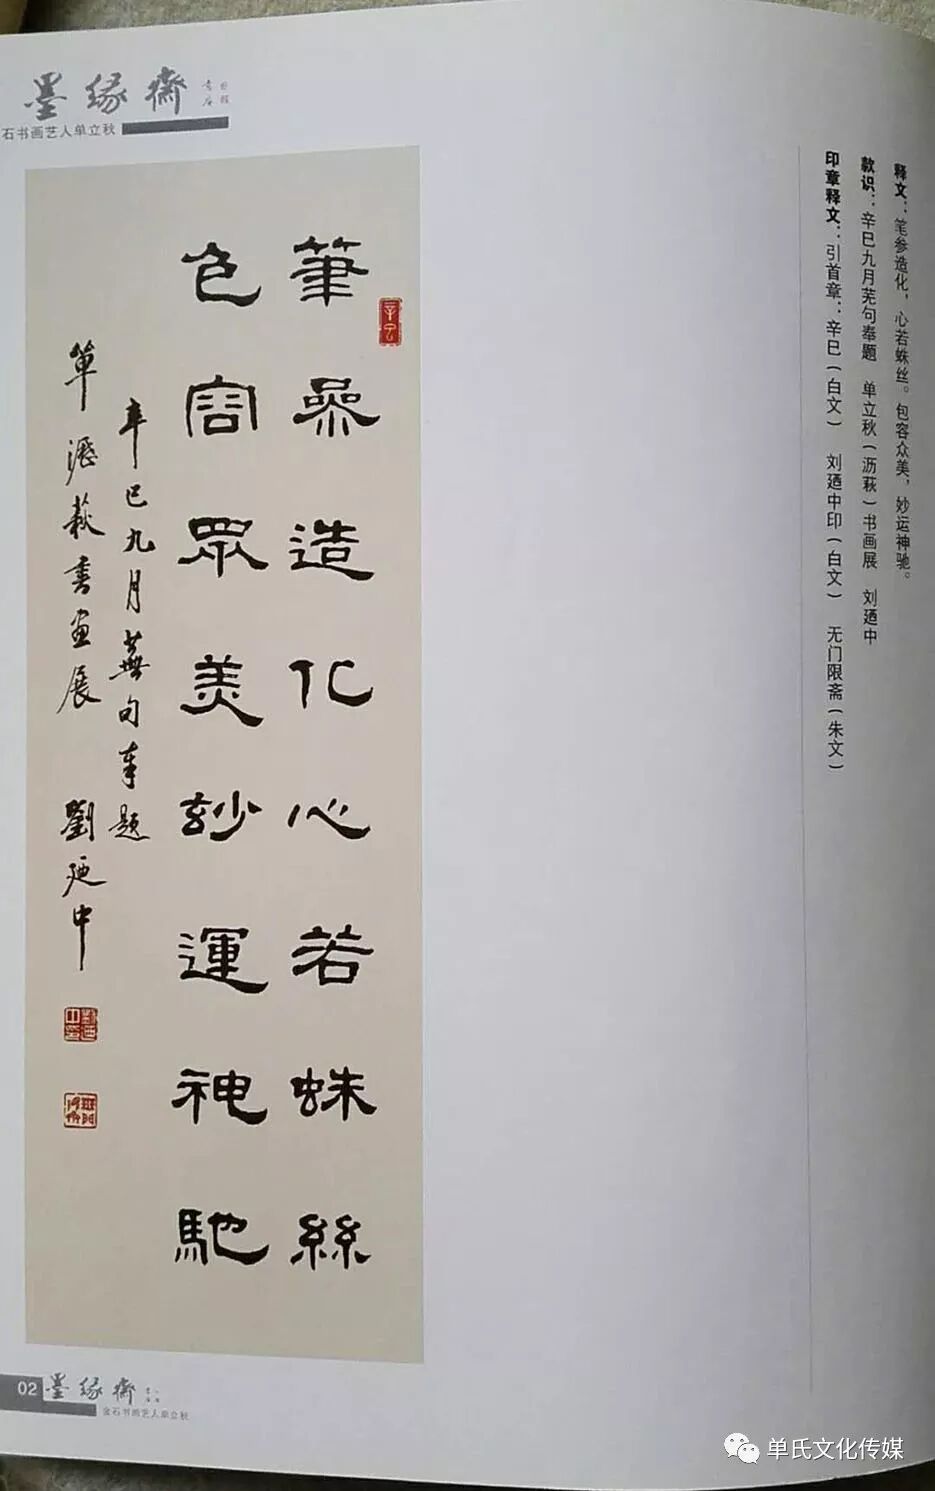 墨缘斋
石书画艺人单立秋
释文：笔参造化，心若蛛丝。包容众美，妙运神驰。
款识：辛巳九月芜句奉题　单立秋（沥萩）书画展　刘廼中
印章释文：引首章：辛巳（白文）　刘廼中印（白文）　无门限斋（朱文）
辛巳
筆參造化心若蛛絲
包容眾美妙運神馳
辛巳九月蕪句奉題
單瀝萩書畫展　劉廼中
02 墨缘斋
金石书画艺人单立秋
单氏文化传媒